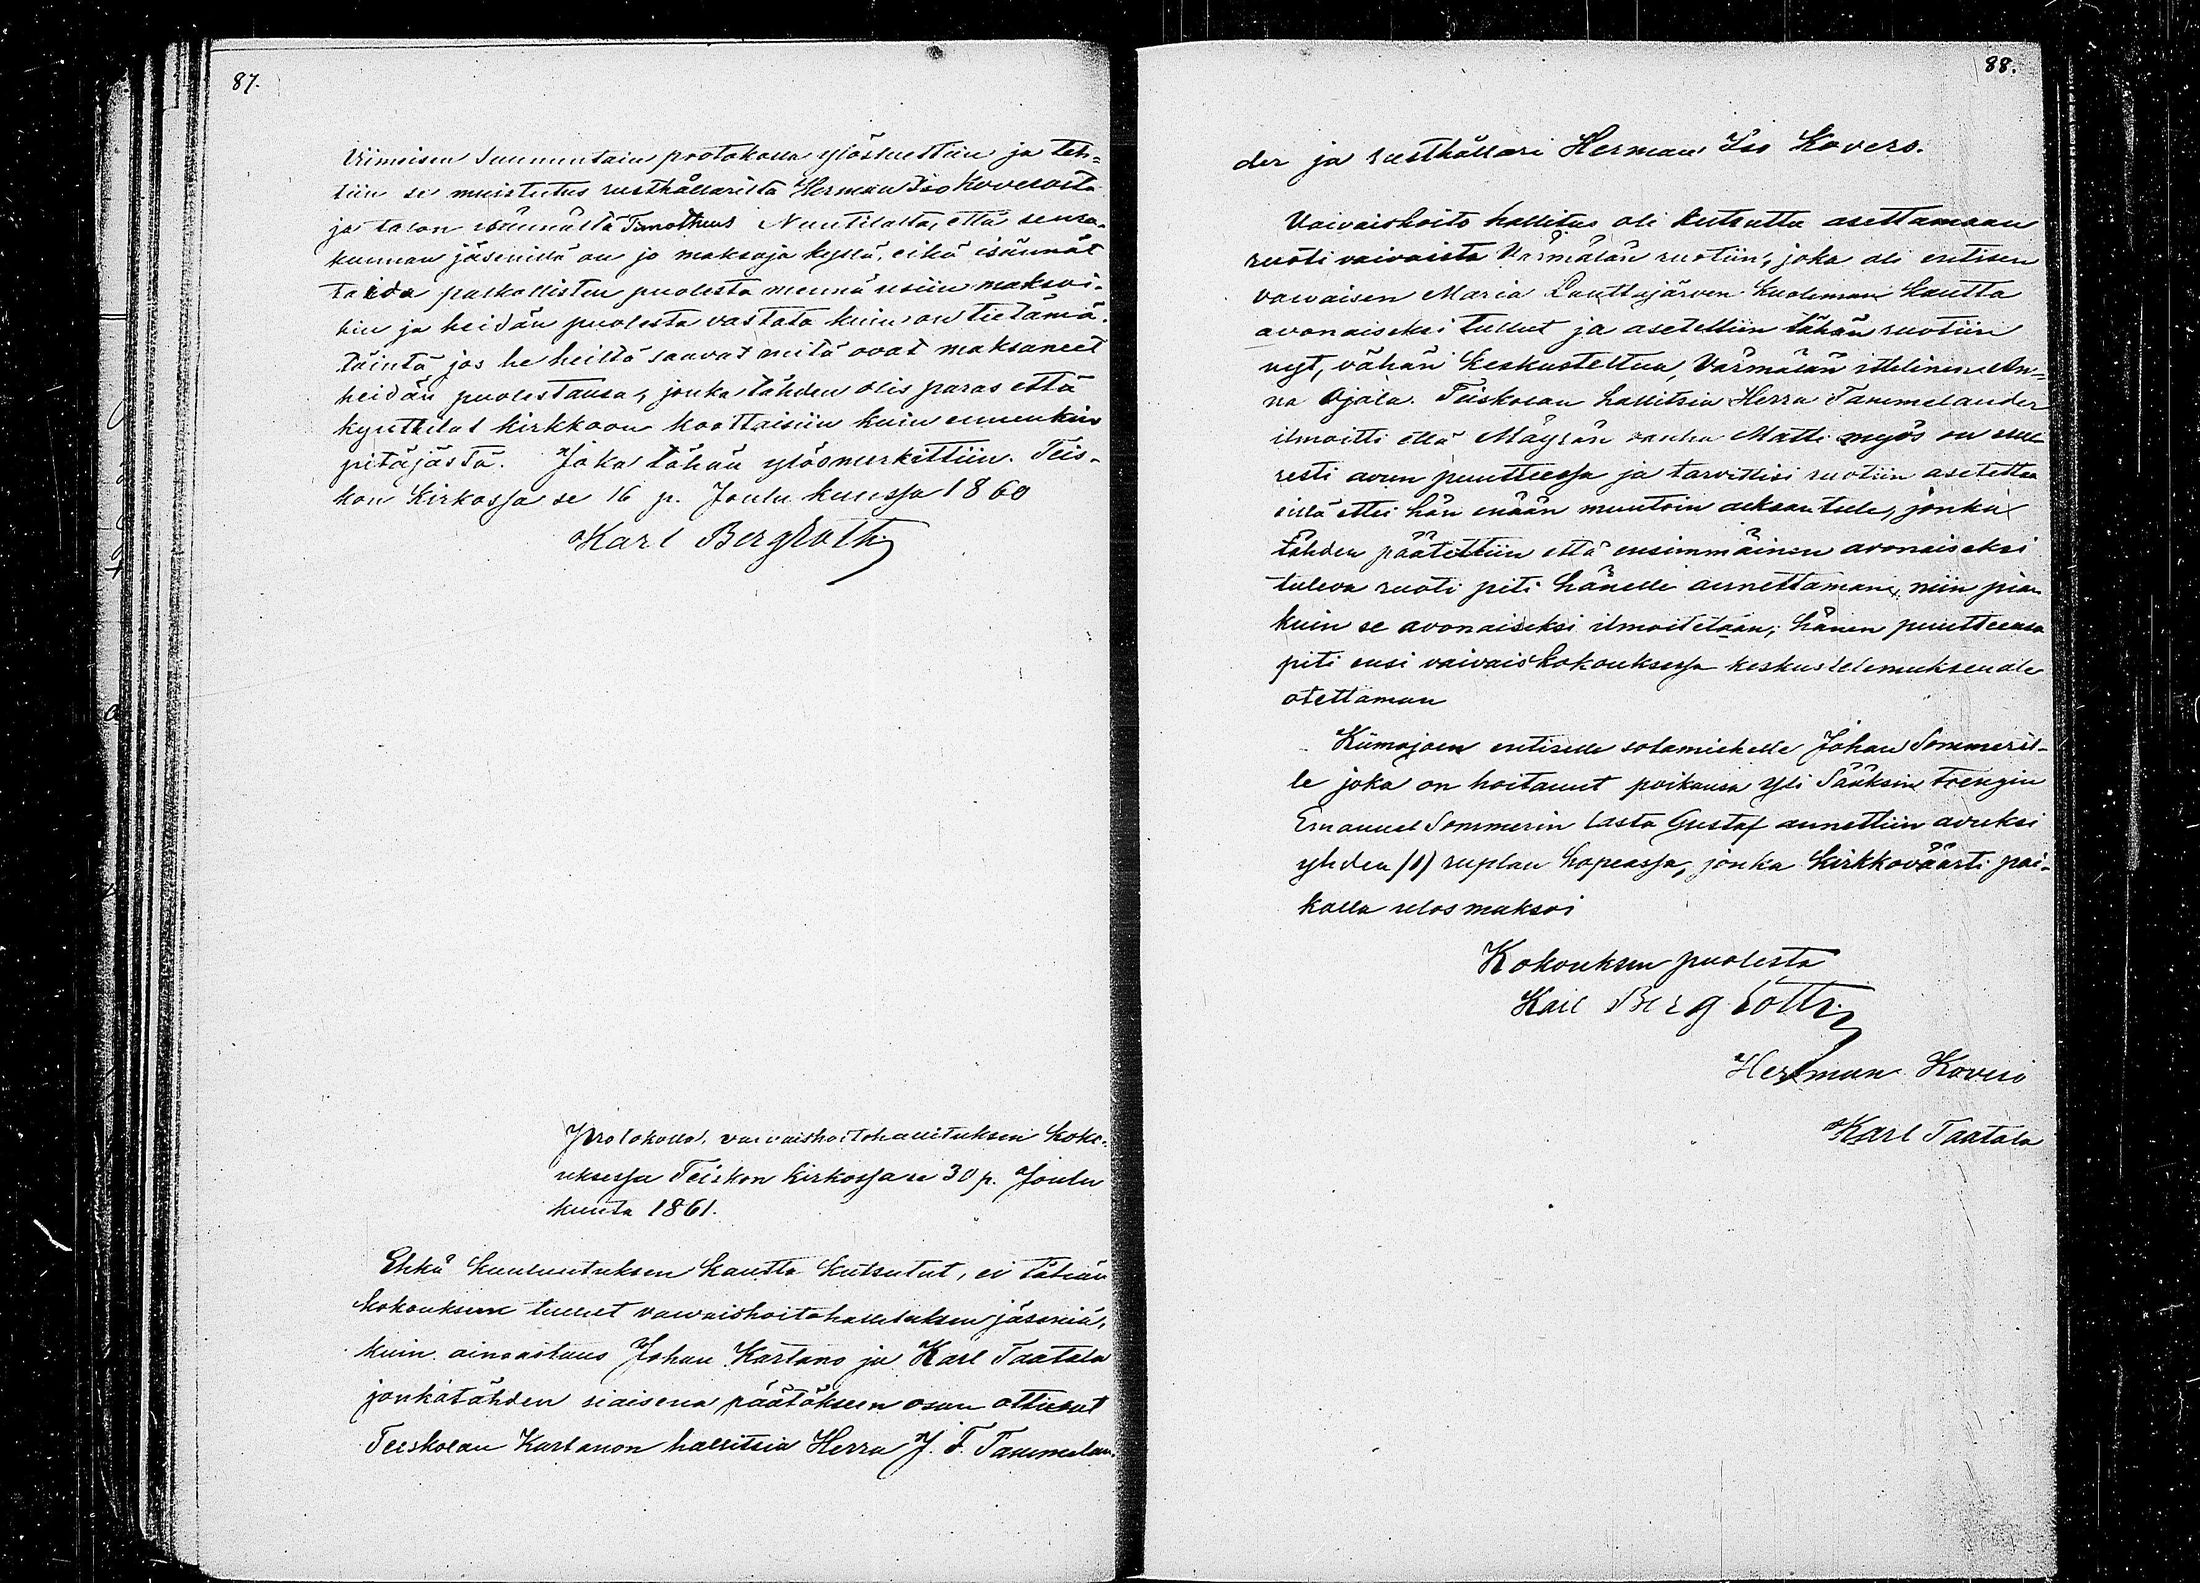 87.
Viimeisen Sunnuntain protokolla ylösluettiin ja teh-
tiin se muistutus rusthållarilta Herman Iso Koverosta
ja talon isännältä Timotheus Nuutilalta, että seura-
kunnan jäsenillä on jo maksoja kyllä, eikä isännät
taida palkollisten puolesta mennä usiin maksoi-
hin ja heidän puolesta vastata kuin on tietämä-
töintä jos he heiltä saavat mitä ovat maksaneet
heidän puolestansa, jonka tähden olis paras että
kynttilät kirkkoon koottaisiin kuin ennenkin
pitäjästä. Joka tähän ylösmerkittiin. Teis-
kon Kirkossa se 16 p. Joulu kuussa 1860
Karl Bergroth
Protokolla, vaivaishoitohallituksen koko-
uksessa Teiskon kirkossa se 30 p. Joulu
kuuta 1861.
Ehkä kuulutuksen kautta kutsutut, ei tähän
kokouksen tullut vaivaishoitohallituksen jäseniä,
kuin ainoastans Johan Kartano ja Karl Taatala
jonkatähden siaisena päätökseen osan ottivat
Teiskolan Kartanon hallitsia Herra J. F. Tammelan-
88.
der ja rusthållari Herman Iso Kovero.
Vaivaishoito hallitus oli kutsuttu asettamaan
ruotivaivaista Värmälän ruotiin, joka oli entisen
vaivaisen Maria Lauttajärven kuoleman kautta
avonaiseksi tullut ja asetettiin tähän ruotiin
nyt, vähän keskusteltua, Värmälän ittelinen An-
na Ojala. Teiskolan hallitsia Herra Tammelander
ilmoitti että Mäyrän vanha Matti myös on suu
resti avun puutteessa ja tarvittisi ruotiin asetettaa
sillä ettei hän enään muutoin aikaan tule, jonka
tähden päätettiin että ensimmäinen avonaiseksi
tuleva ruoti piti hänelle annettaman, niin pian
kuin se avonaiseksi ilmoitetaan; hänen puutteensa
piti ensi vaivaiskokouksessa keskustelemuksen ala
otettaman
Kiimajoen entiselle sotamiehelle Johan Sommeril-
le joka on hoitanut poikansa Yli Sääksin trengin
Emanuel Sommerin lasta Gustaf annettiin avuksi
yhden /1/ ruplan hopeassa, jonka kirkkoväärti pai-
kalla ulosmaksoi
Kokouksen puolesta
Karl Bergroth
Herman Kovero
Karl Taatala